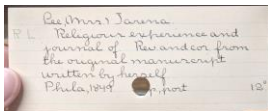 Lee, Mrs. Jarena
R L Religious experience and
journal of Rev and cor from
the original manuscript
written by herself
Phila, 1849 p, port 12°